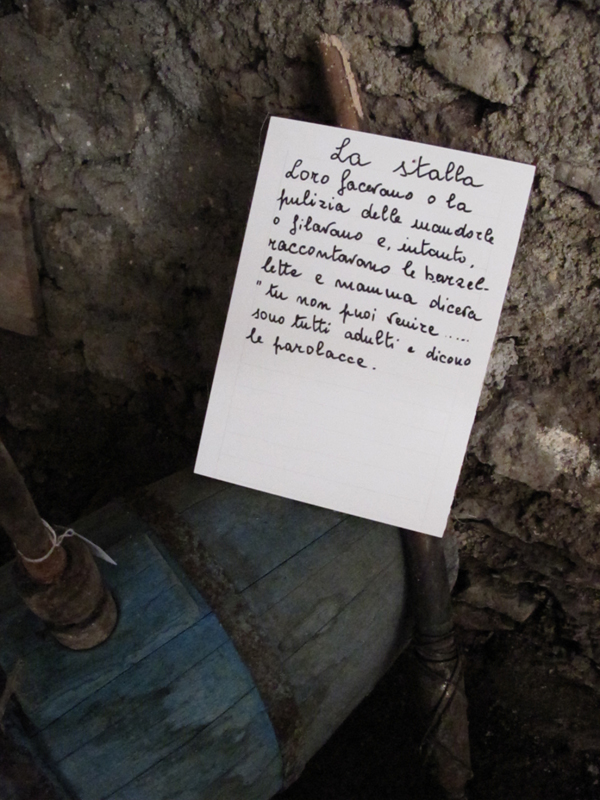 La stalla
Loro facevano o la
pulizia delle mandorle
o filavano e, intanto,
raccontavano le barzel-
lette e mamma diceva
"tu non puoi venire .....
sono tutti adulti e dicono
le parolacce.